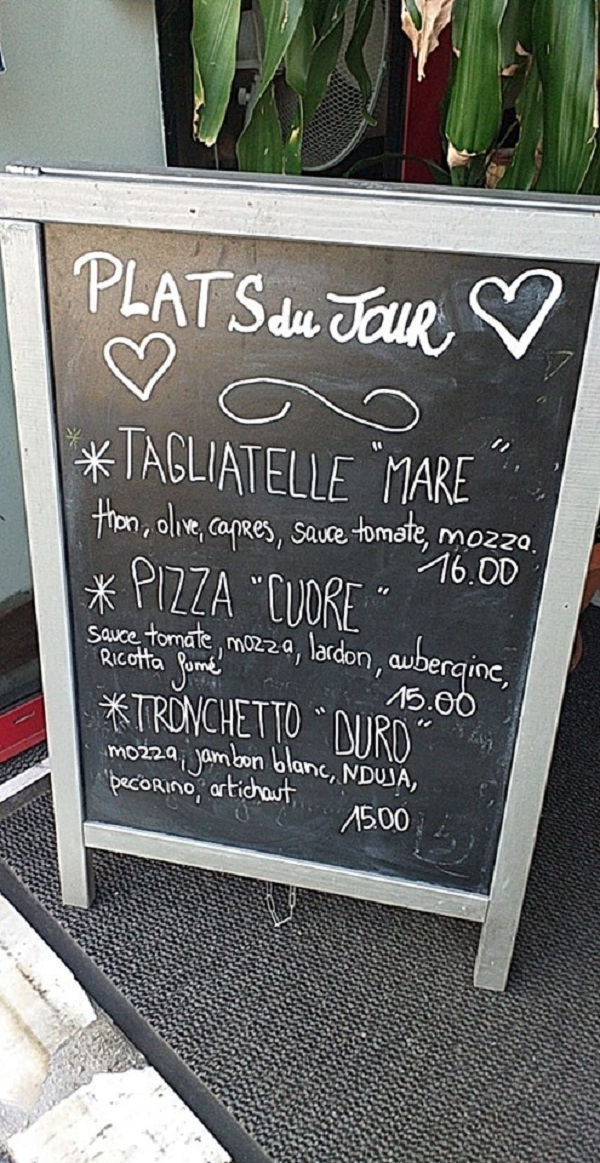 PLATS du JOUR
* TAGLIATELLE "MARE"
thon, olive, capres, sauce tomate, mozza.
16.00
* PIZZA "CUORE"
sauce tomate, mozza, lardon, aubergine,
Ricotta fumé
15.00
* TRONCHETTO "DURO"
mozza, jambon blanc, NDUJA,
pecorino, artichaut
15.00